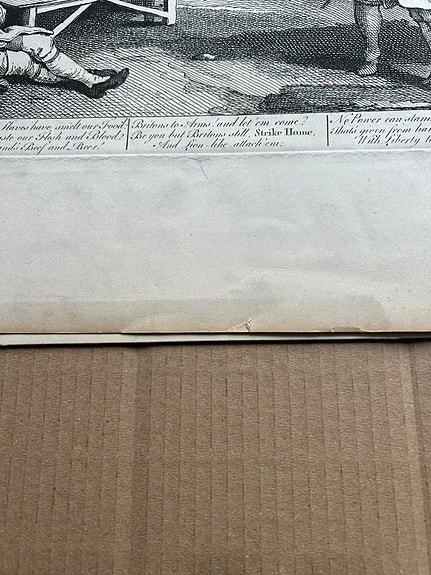 Slaves have smelt our Food,
aste our Flesh and Blood,
and's Beef and Beer!
Britons to Arms! and let 'em come,
Be you but Britons still, Strike Home,
And Lion-like attack 'em;
No Power can stand
That's given from han
With Liberty to